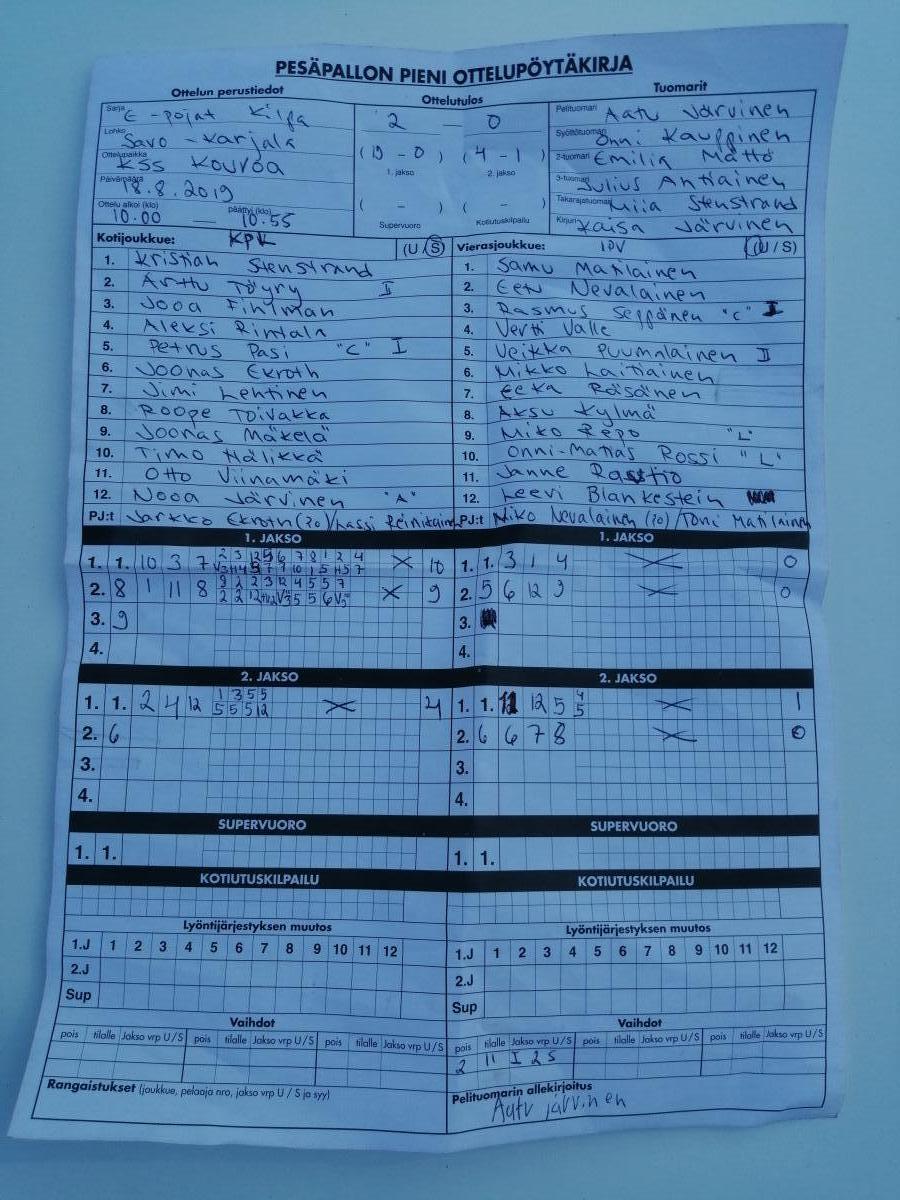 PESÄPALLON PIENI OTTELUPÖYTÄKIRJA
Ottelun perustiedot Ottelutulos Tuomarit
Sarja E-pojat Kilpa
Lohko Savo-Karjala
Ottelupaikka KSS Kouvoa
Päivämäärä 18.8.2019
Ottelu alkoi (klo) 10.00 — päättyi (klo) 10.55
2 — 0
(19 - 0) (4 - 1)
1. jakso 2. jakso
( - ) ( - )
Supervuoro Kotiutuskilpailu
Pelituomari Aatu Järvinen
Syöttötuomari Onni Kauppinen
2-tuomari Emilia Mättö
3-tuomari Julius Antiainen
Takarajatuomari Miia Stenstrand
Kirjuri Kaisa Järvinen
Kotijoukkue: KPK (U/S)
1. Kristian Stenstrand
2. Arttu Töyry II
3. Jooa Fihlman
4. Aleksi Rintala
5. Petrus Pasi "C" I
6. Joonas Ekroth
7. Jimi Lehtinen
8. Roope Toivakka
9. Joonas Mäkelä
10. Timo Hälikkä
11. Otto Viinamäki
12. Nooa Järvinen "A"
PJ:t Jarkko Ekroth (20) / Lassi Reinikainen
Vierasjoukkue: IPV (U/S)
1. Samu Matilainen
2. Eetu Nevalainen
3. Rasmus Seppänen "C" I
4. Vertti Valle
5. Veikka Puumalainen II
6. Mikko Laitiainen
7. Eeka Räsänen
8. Aksu Kylmä
9. Miko Repo "L"
10. Onni-Matias Rossi "L"
11. Janne Rastio
12. Leevi Blankestein
PJ:t Niko Nevalainen (20) / Toni Matilainen
1. JAKSO 1. JAKSO
1. 1. 10 3 7 10
2. 8 1 11 8 9
3. 9
4.
1. 1. 3 1 4 0
2. 5 6 12 9 0
3.
4.
2. JAKSO 2. JAKSO
1. 1. 2 4 12 1 3 5 5 4
5 5 5 12
2. 6
3.
4.
1. 1. 12 5 4 1
5
2. 6 6 7 8 0
3.
4.
SUPERVUORO SUPERVUORO
1. 1. 1. 1.
KOTIUTUSKILPAILU KOTIUTUSKILPAILU
Lyöntijärjestyksen muutos Lyöntijärjestyksen muutos
1.J 1 2 3 4 5 6 7 8 9 10 11 12 1.J 1 2 3 4 5 6 7 8 9 10 11 12
2.J 2.J
Sup Sup
Vaihdot Vaihdot
pois tilalle Jakso vrp U/S pois tilalle Jakso vrp U/S pois tilalle Jakso vrp U/S pois tilalle Jakso vrp U/S pois tilalle Jakso vrp U/S pois tilalle Jakso vrp U/S
2 11 I 2 S
Rangaistukset (joukkue, pelaaja nro, jakso vrp U / S ja syy)
Pelituomarin allekirjoitus
Aatu järvinen